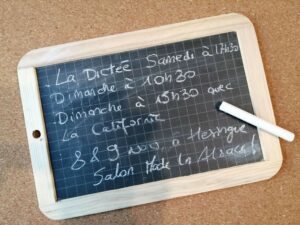 La Dictée Samedi à 17h30
Dimanche à 10h30
Dimanche à 15h30 avec
La Californie
8 & 9 nov, à Hésingue
Salon Made In Alsace!